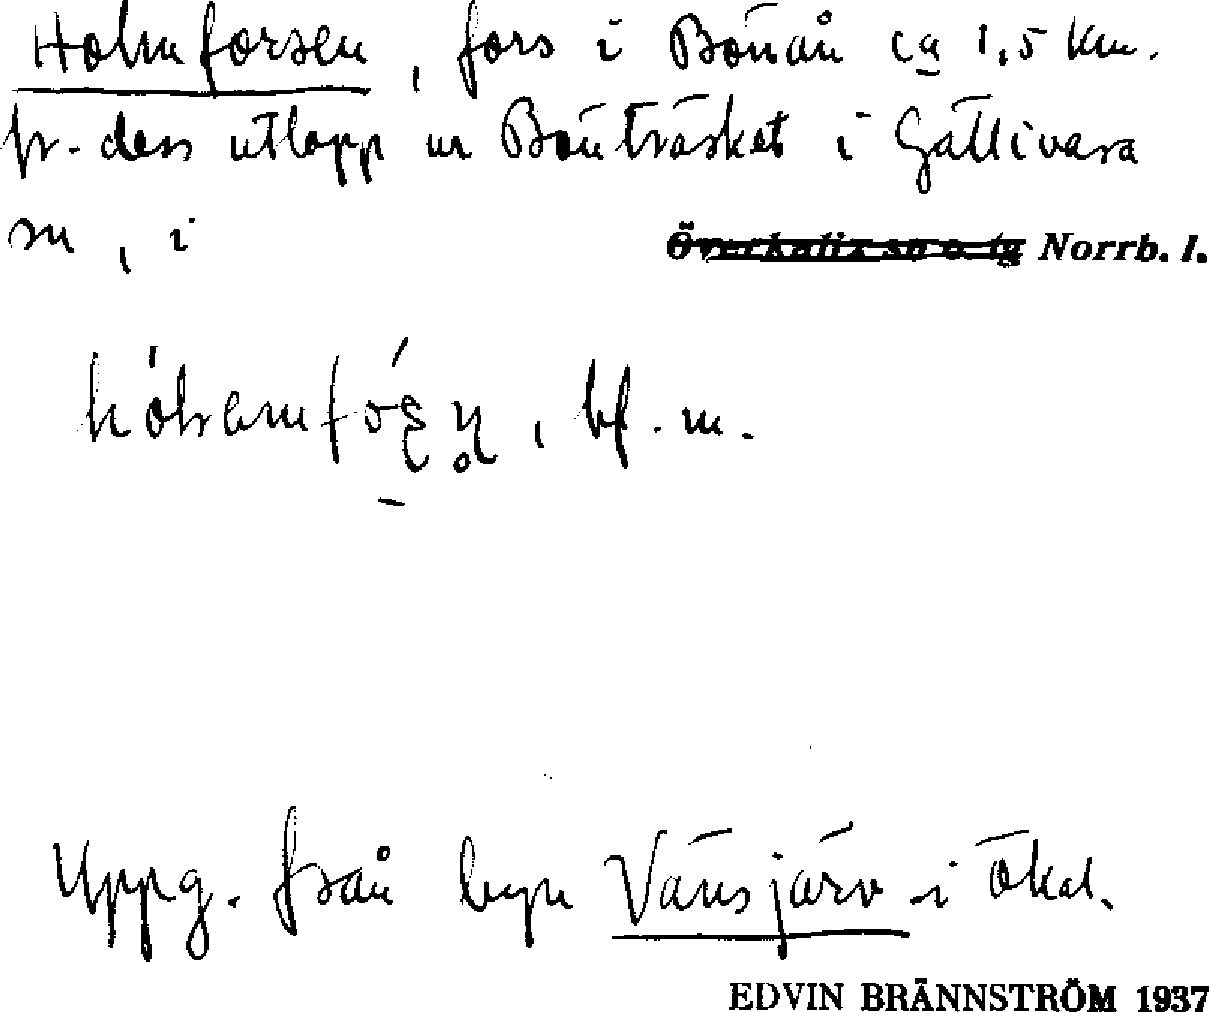 Holmforsen, fors i Bönån ca 1,5 km.
fr. dess utlopp ur Bönträsket i Gällivara
sn, i Överkalix sn o. tg Norrb. l.
bf. m.
Uppg. från byn Vänsjärv i Ökal.
EDVIN BRÄNNSTRÖM 1937